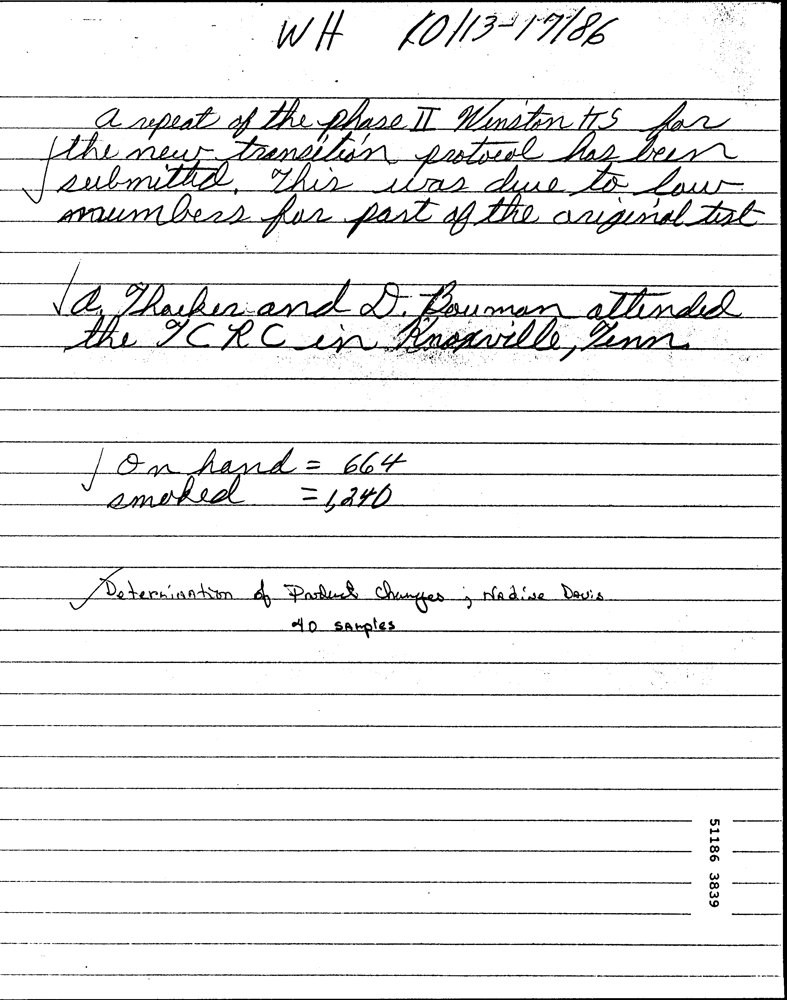 WH 10/13-17/86
A repeat of the phase II Winston KS for
the new transition protocol has been
submitted. This was due to low
numbers for part of the original test
A. Thacker and D. Bowman attended
the TCRC in Knoxville, Tenn.
On hand = 664
smoked = 1,240
Determination of Product Changes ; Nadine Davis
40 samples
51186 3839